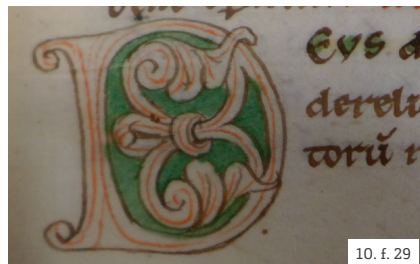 D Eus d
dereli
torū r
10. f. 29